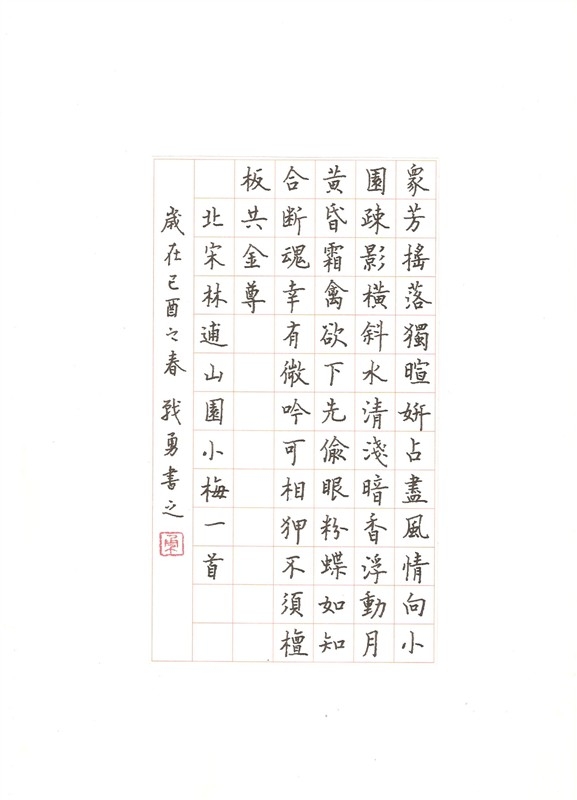 衆芳摇落獨暄妍占盡風情向小
園疎影横斜水清淺暗香浮動月
黄昏霜禽欲下先偷眼粉蝶如知
合断魂幸有微吟可相狎不須檀
板共金尊
北宋林逋山園小梅一首
歲在己酉之春 戰勇書之